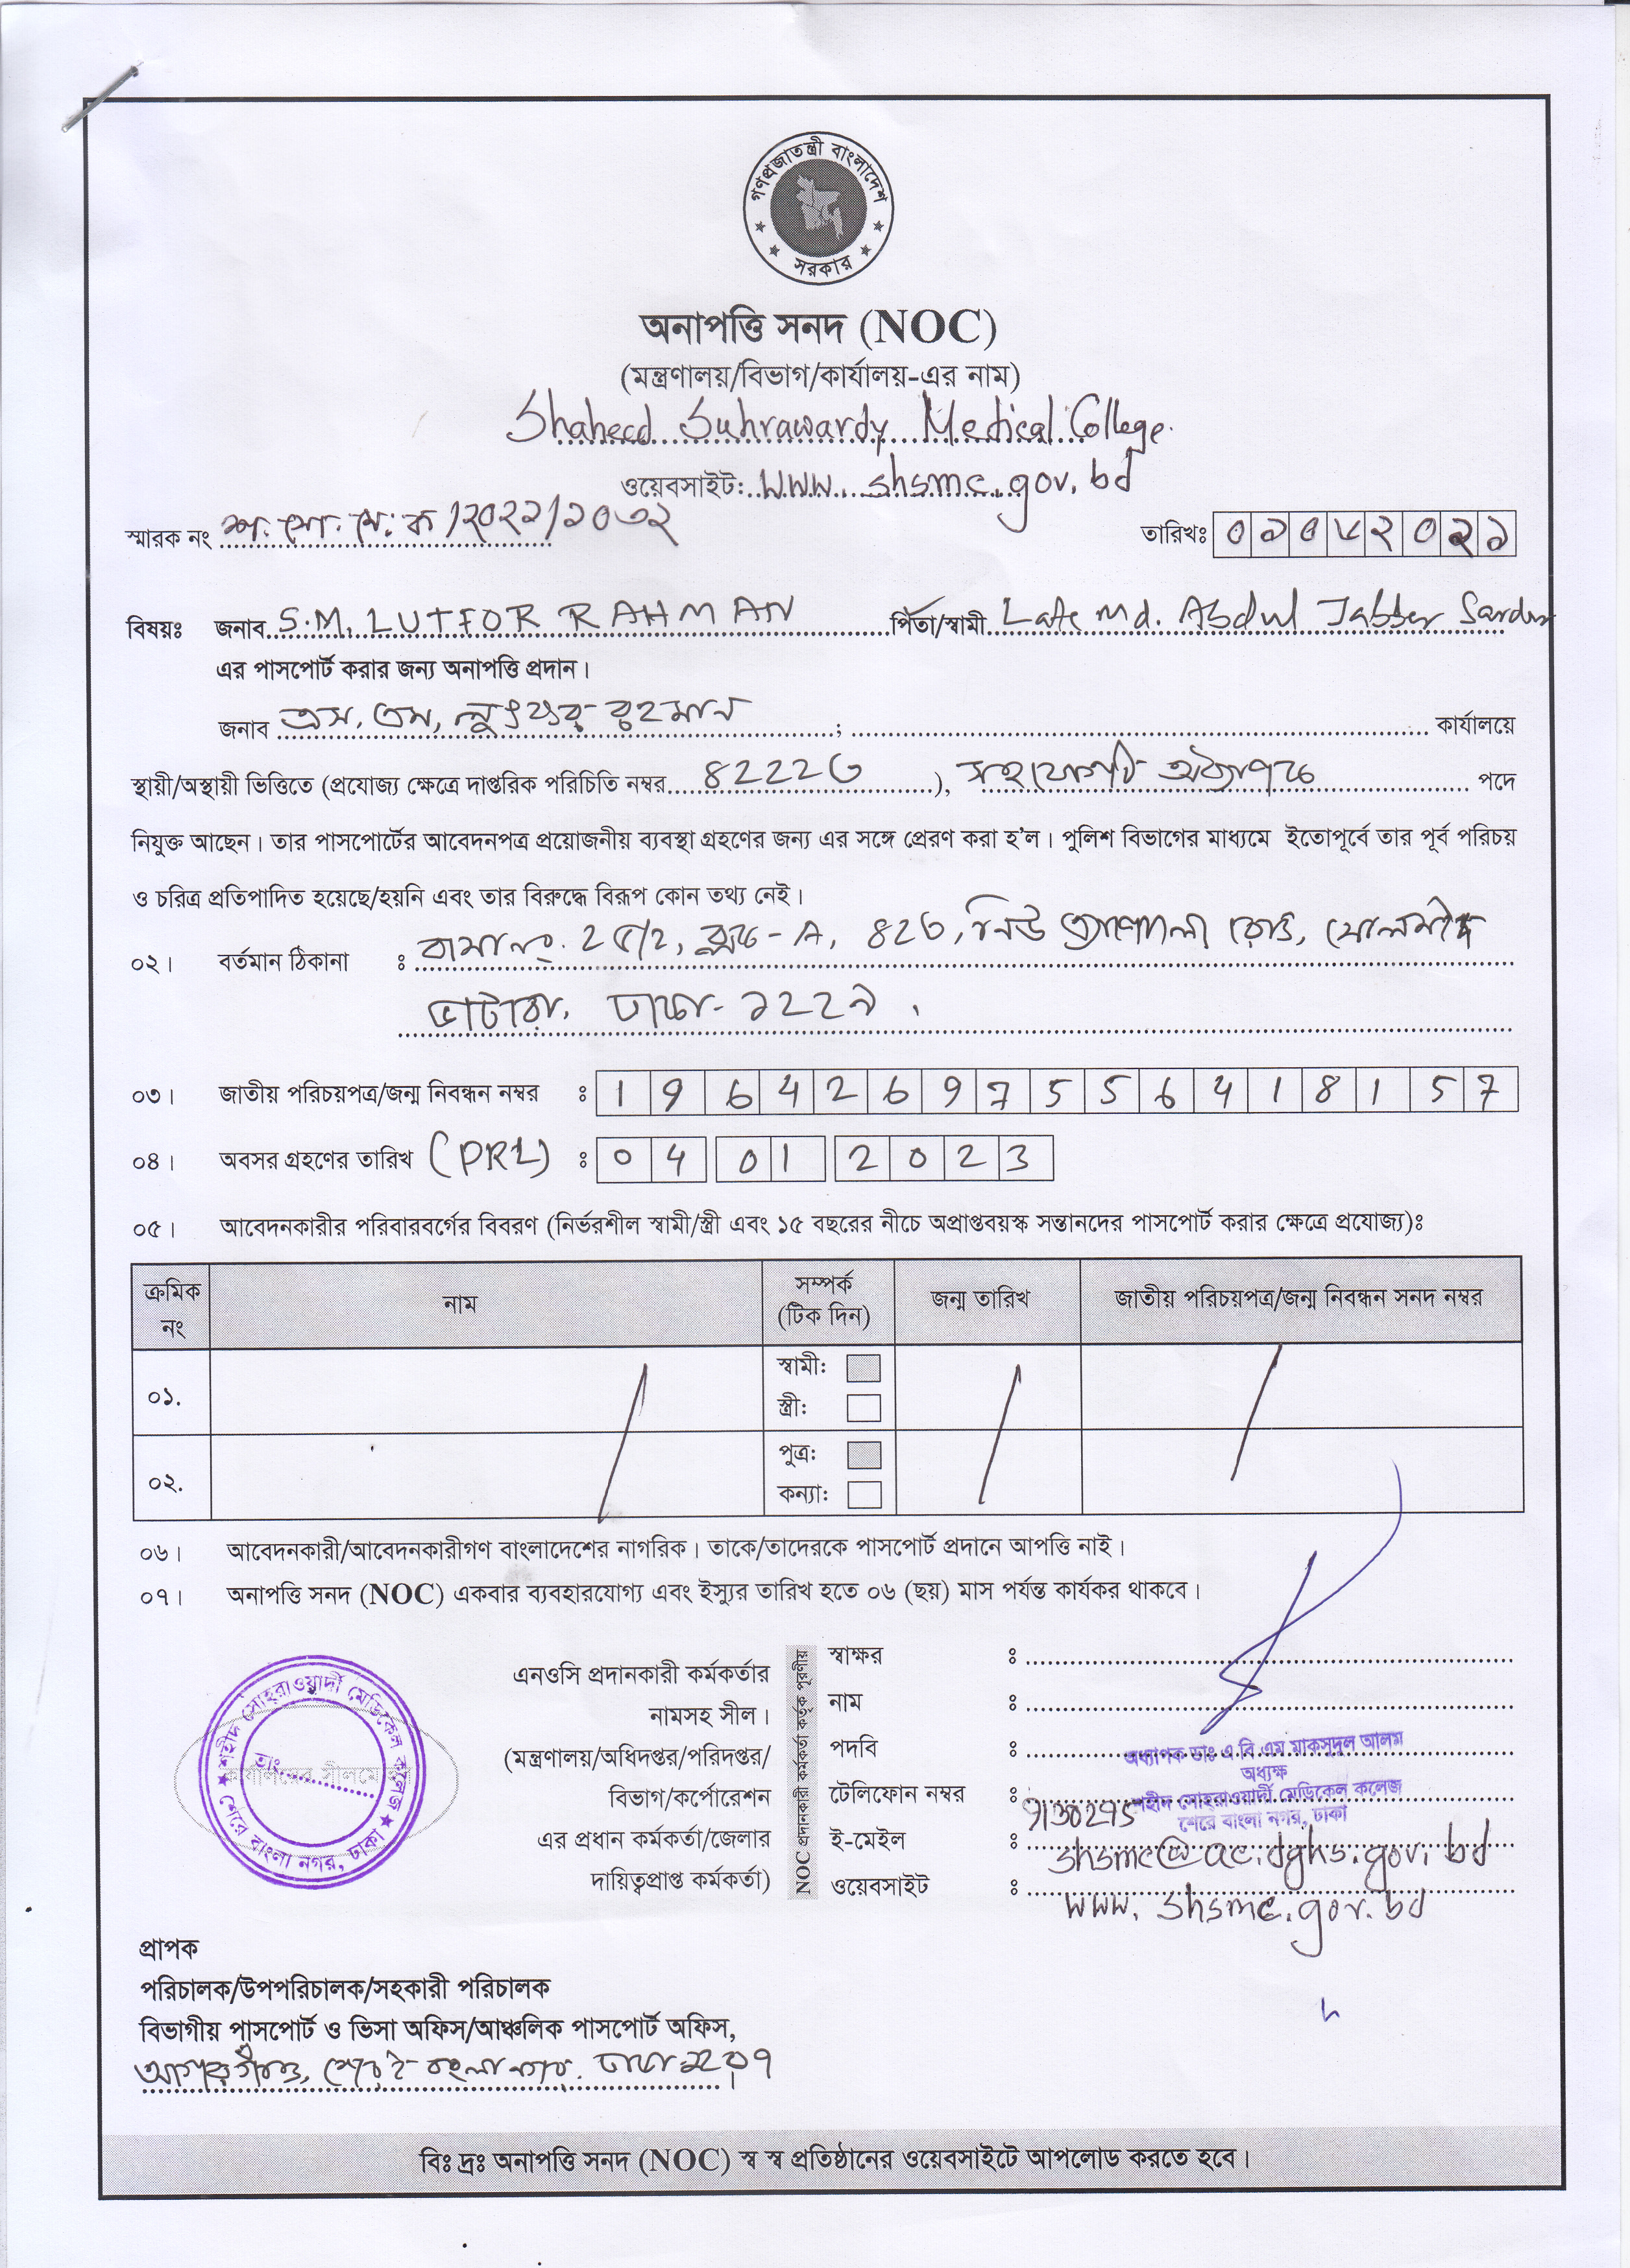 গণপ্রজাতন্ত্রী বাংলাদেশ
সরকার
অনাপত্তি সনদ (NOC)
(মন্ত্রণালয়/বিভাগ/কার্যালয়-এর নাম)
Shaheed Suhrawardy Medical College.
ওয়েবসাইট: www. shsmc.gov.bd
স্মারক নং শ. সো. মে. ক /২০২১/১০৩২
তারিখঃ
বিষয়ঃ জনাব S.M. LUTFOR RAHMAN পিতা/স্বামী Late Md. Abdul Jabber Sarder
এর পাসপোর্ট করার জন্য অনাপত্তি প্রদান।
জনাব এস, এম, লুৎফর রহমান ; কার্যালয়ে
স্থায়ী/অস্থায়ী ভিত্তিতে (প্রযোজ্য ক্ষেত্রে দাপ্তরিক পরিচিতি নম্বর ), সহযোগী অধ্যাপক পদে
নিযুক্ত আছেন। তার পাসপোর্টের আবেদনপত্র প্রয়োজনীয় ব্যবস্থা গ্রহণের জন্য এর সঙ্গে প্রেরণ করা হ'ল। পুলিশ বিভাগের মাধ্যমে ইতোপূর্বে তার পূর্ব পরিচয়
ও চরিত্র প্রতিপাদিত হয়েছে/হয়নি এবং তার বিরুদ্ধে বিরূপ কোন তথ্য নেই।
০২। বর্তমান ঠিকানা : বাসা নং. ব্লক- A, নিউ রোড,
ভাটারা, ঢাকা- ১২২৯.
০৩। জাতীয় পরিচয়পত্র/জন্ম নিবন্ধন নম্বর ঃ 19642697556418157
০৪। অবসর গ্রহণের তারিখ (PRL) ঃ 04 01 2023
০৫। আবেদনকারীর পরিবারবর্গের বিবরণ (নির্ভরশীল স্বামী/স্ত্রী এবং ১৫ বছরের নীচে অপ্রাপ্তবয়স্ক সন্তানদের পাসপোর্ট করার ক্ষেত্রে প্রযোজ্য)ঃ
ক্রমিক নং নাম সম্পর্ক (টিক দিন) জন্ম তারিখ জাতীয় পরিচয়পত্র/জন্ম নিবন্ধন সনদ নম্বর
০১. স্বামী:
স্ত্রী:
০২. পুত্র:
কন্যা:
০৬। আবেদনকারী/আবেদনকারীগণ বাংলাদেশের নাগরিক। তাকে/তাদেরকে পাসপোর্ট প্রদানে আপত্তি নাই।
০৭। অনাপত্তি সনদ (NOC) একবার ব্যবহারযোগ্য এবং ইস্যুর তারিখ হতে ০৬ (ছয়) মাস পর্যন্ত কার্যকর থাকবে।
শহীদ সোহরাওয়ার্দী মেডিকেল কলেজ
শেরে বাংলা নগর, ঢাকা
তাং
এনওসি প্রদানকারী কর্মকর্তার
নামসহ সীল।
(মন্ত্রণালয়/অধিদপ্তর/পরিদপ্তর/
বিভাগ/কর্পোরেশন
এর প্রধান কর্মকর্তা/জেলার
দায়িত্বপ্রাপ্ত কর্মকর্তা)
NOC প্রদানকারী কর্মকর্তা কর্তৃক পূরণীয়
স্বাক্ষর ঃ
নাম ঃ
পদবি ঃ
অধ্যাপক ডাঃ এ বি এম মাকসুদুল আলম
অধ্যক্ষ
শহীদ সোহরাওয়ার্দী মেডিকেল কলেজ
শেরে বাংলা নগর, ঢাকা
টেলিফোন নম্বর ঃ 9130295
ই-মেইল ঃ shsmc@ac.dghs.gov.bd
ওয়েবসাইট ঃ www. shsmc.gov.bd
প্রাপক
পরিচালক/উপপরিচালক/সহকারী পরিচালক
বিভাগীয় পাসপোর্ট ও ভিসা অফিস/আঞ্চলিক পাসপোর্ট অফিস,
আগারগাঁও, শেরে বাংলা নগর, ঢাকা-১২০৭
বিঃ দ্রঃ অনাপত্তি সনদ (NOC) স্ব স্ব প্রতিষ্ঠানের ওয়েবসাইটে আপলোড করতে হবে।